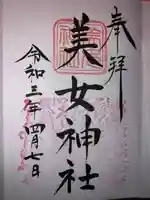 奉拝
美女神社
令和三年四月七日